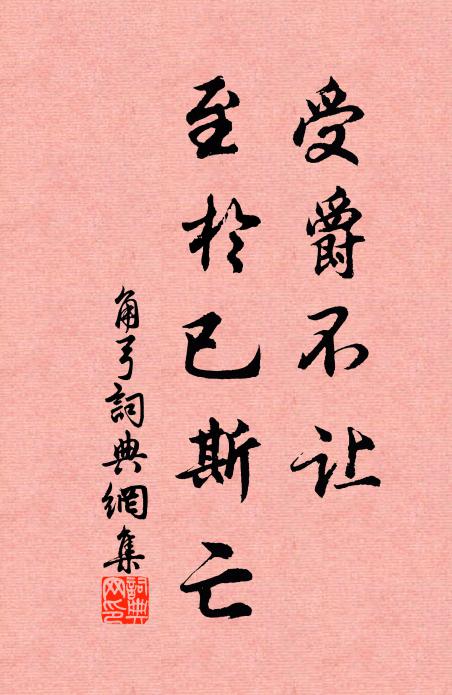 受爵不让
至於已斯亡
角弓詞典網集
詞典网印